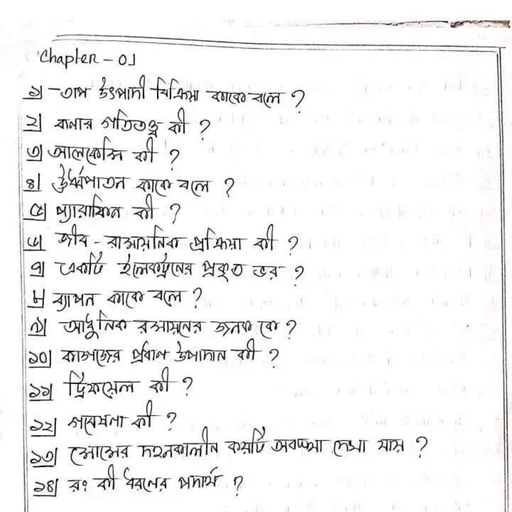 Chapter - 01
১| তাপ উৎপাদী বিক্রিয়া কাকে বলে ?
২| কনার গতিতত্ত্ব কী ?
৩| আলকেমি কী ?
৪| উর্ধ্বপাতন কাকে বলে ?
৫| প্যারাফিন কী ?
৬| জীব - রাসায়নিক প্রক্রিয়া কী ?
৭| একটি ইলেকট্রনের প্রকৃত ভর ?
৮| ব্যাপন কাকে বলে ?
৯| আধুনিক রসায়নের জনক কে ?
১০| কাগজের প্রধান উপাদান কী ?
১১| ট্রিফয়েল কী ?
১২| গবেষনা কী ?
১৩| মোমের দহনকালীন কয়টি অবস্থা দেখা যায় ?
১৪| রং কী ধরনের পদার্থ ?